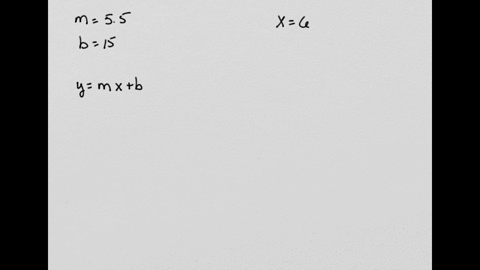 m = 5.5
b = 15
y = mx + b
x = 6